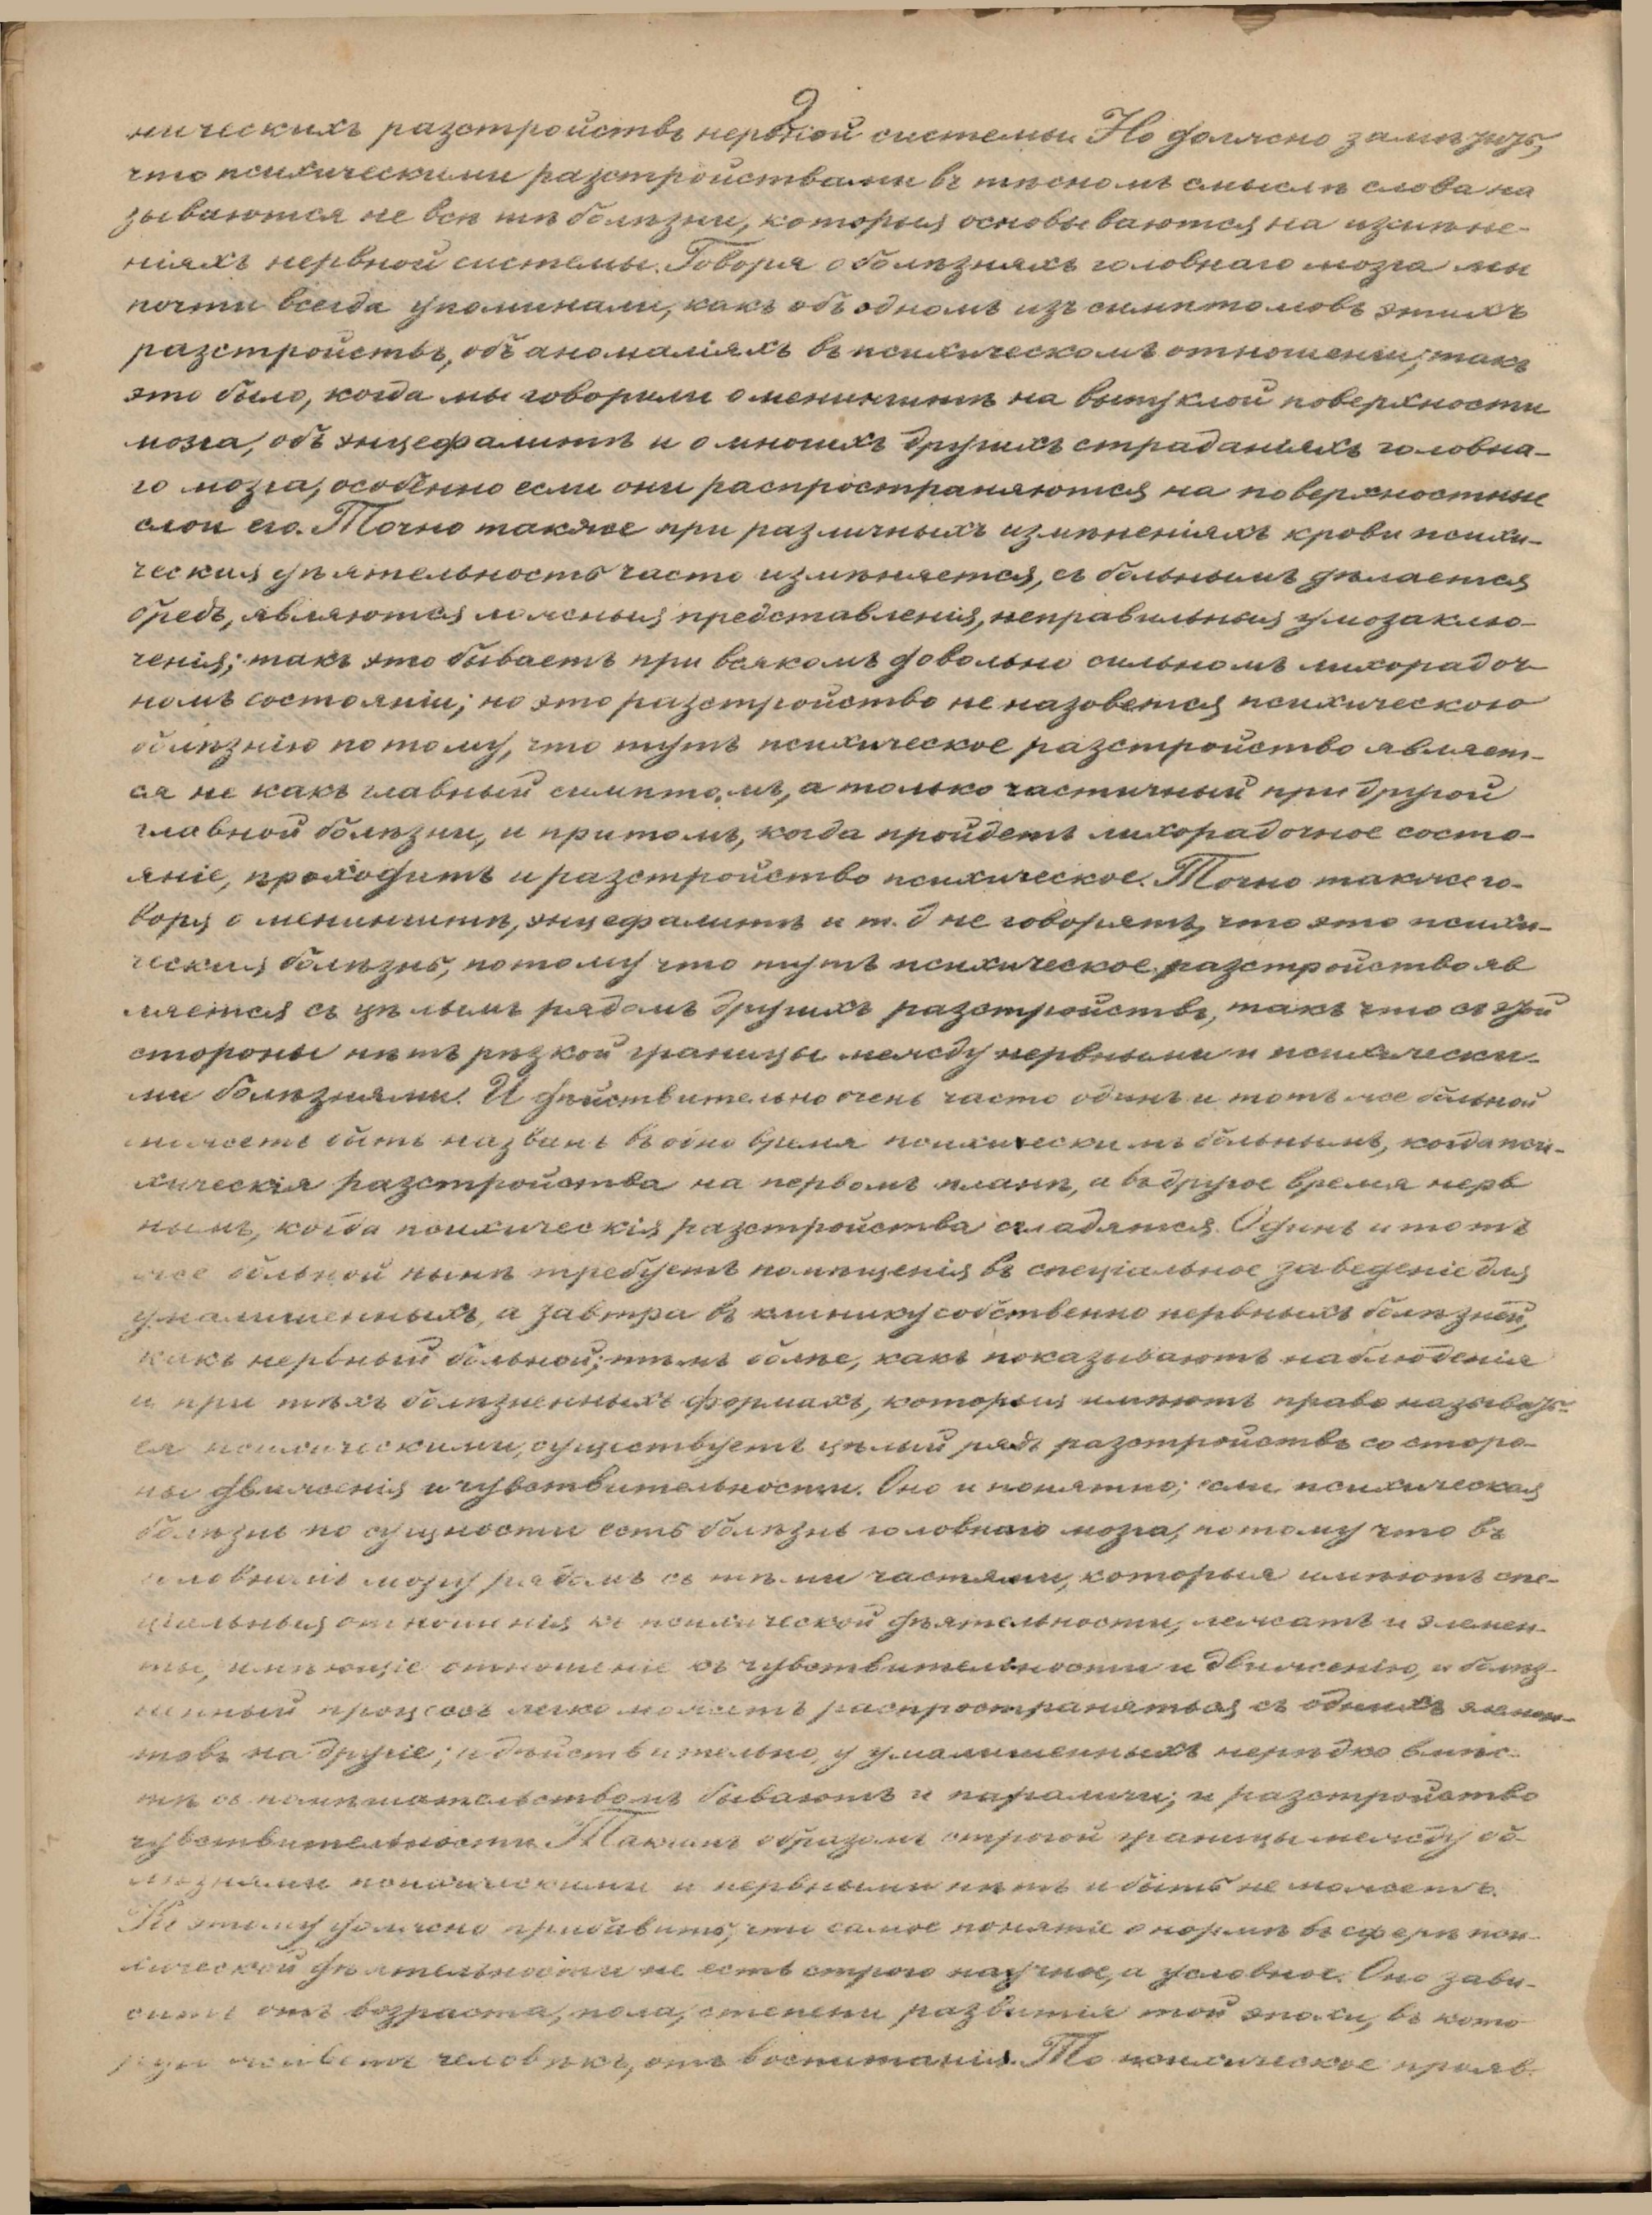 2
ническихъ разстройствъ нервной системы. Но должно замѣтить,
что психическими разстройствами въ тѣсномъ смыслѣ слова на
зываются не всѣ тѣ болѣзни, которыя основываются на измѣне-
ніяхъ нервной системы. Говоря о болѣзняхъ головнаго мозга мы
почти всегда упоминали, какъ объ одномъ изъ симптомовъ этихъ
разстройствъ, объ аномаліяхъ въ психическомъ отношеніи; такъ
это было, когда мы говорили о менингитѣ на выпуклой поверхности
мозга, объ энцефалитѣ и о многихъ другихъ страданіяхъ головна-
го мозга, особенно если они распространяются на поверхностные
слои его. Точно также при различныхъ измѣненіяхъ крови психи-
ческая дѣятельность часто измѣняется, съ больнымъ дѣлается
бредъ, являются ложныя представленія, неправильныя умозаклю-
ченія; такъ это бываетъ при всякомъ довольно сильномъ лихорадоч
номъ состояніи; но это разстройство не назовется психическою
болѣзнію потому, что тутъ психическое разстройство являет-
ся не какъ главный симптомъ, а только частичный при другой
главной болѣзни, и притомъ, когда пройдетъ лихорадочное состо-
яніе, проходитъ и разстройство психическое. Точно также го-
воря о менингитѣ, энцефалитѣ и т. д не говорятъ, что это психи-
ческая болѣзнь, потому что тутъ психическое разстройство яв
ляется съ цѣлымъ рядомъ другихъ разстройствъ, такъ что съ этой
стороны нѣтъ рѣзкой границы между нервными и психически-
ми болѣзнями. И дѣйствительно очень часто одинъ и тотъ же больной
можетъ быть названъ въ одно время психическимъ больнымъ, когда пси-
хическія разстройства на первомъ планѣ, а въ другое время нерв
нымъ, когда психическія разстройства сгладятся. Одинъ и тотъ
же больной нынѣ требуетъ помѣщенія въ спеціальное заведеніе для
умалишенныхъ, а завтра въ клинику собственно нервныхъ болѣзней,
какъ нервный больной; тѣмъ болѣе, какъ показываютъ наблюденія
и при тѣхъ болѣзненныхъ формахъ, которыя имѣютъ право называть-
ся психическими, существуетъ цѣлый рядъ разстройствъ со сторо-
ны движенія и чувствительности. Оно и понятно; если психическая
болѣзнь по сущности есть болѣзнь головнаго мозга, потому что въ
головномъ мозгу рядомъ съ тѣми частями, которыя имѣютъ спе-
ціальныя отношенія къ психической дѣятельности, лежатъ и элемен-
ты, имѣющіе отношеніе къ чувствительности и движенію, и болѣз-
ненный процессъ легко можетъ распространяться съ однихъ элемен-
товъ на другіе; и дѣйствительно, у умалишенныхъ нерѣдко вмѣс-
тѣ съ помѣшательствомъ бываютъ и параличи; и разстройство
чувствительности. Такимъ образомъ строгой границы между бо-
лѣзнями психическими и нервными нѣтъ и быть не можетъ.
Къ этому должно прибавить, что самое понятіе о нормѣ въ сферѣ пси-
хической дѣятельности не есть строго научное, а условное. Оно зави-
ситъ отъ возраста, пола, степени развитія той эпохи, въ кото
рую живетъ человѣкъ, отъ воспитанія. То психическое прояв-